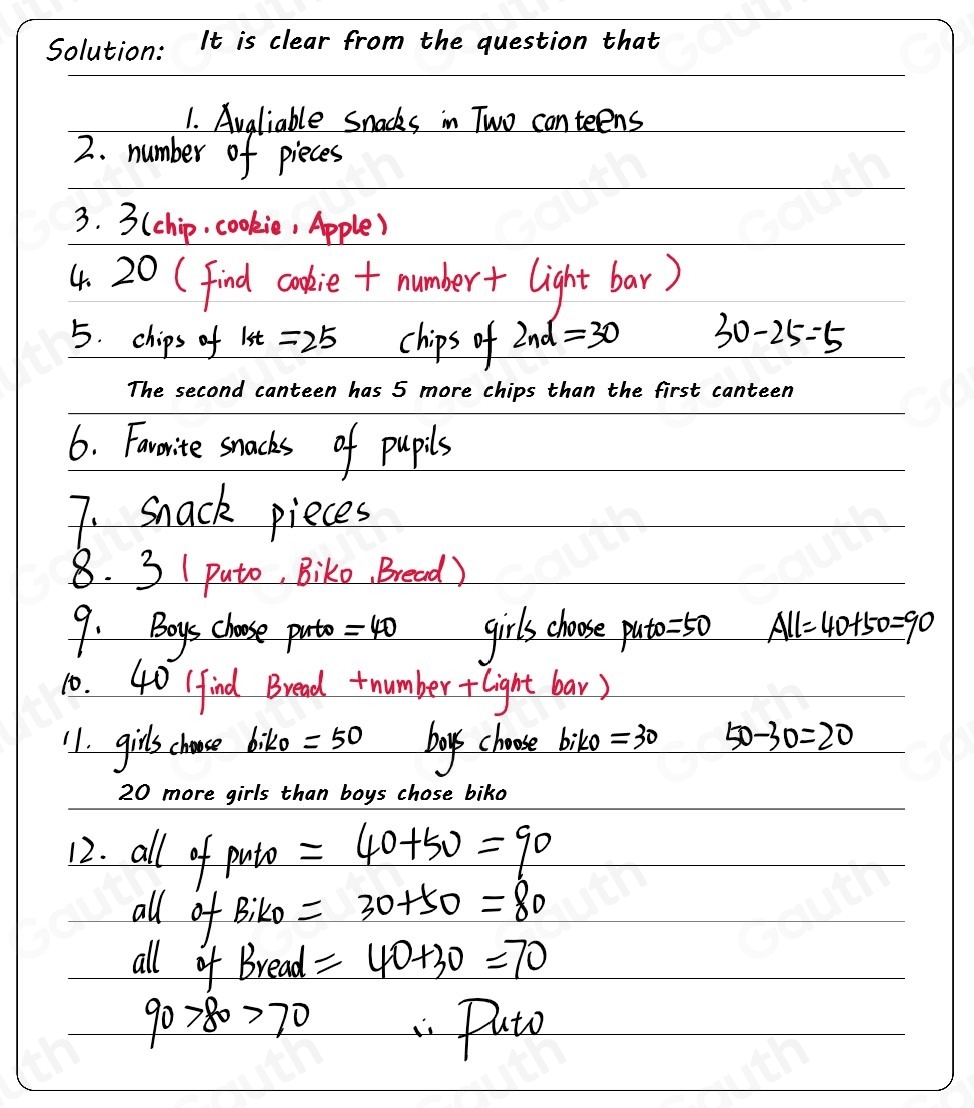 Solution: It is clear from the question that
1. Avaliable snacks in Two canteens
2. number of pieces
3. 3 (chip, cookie, Apple)
4. 20 (find cookie + number + light bar)
5. chips of 1st = 25 chips of 2nd = 30 30-25=5
The second canteen has 5 more chips than the first canteen
6. Favorite snacks of pupils
7. snack pieces
8. 3 (puto, Biko, Bread)
9. Boys choose puto = 40 girls choose puto=50 All=40+50=90
10. 40 (find Bread +number+light bar)
11. girls choose biko = 50 boys choose biko = 30 50-30=20
20 more girls than boys chose biko
12. all of puto = 40+50 = 90
all of Biko = 30+50 = 80
all of Bread = 40+30 = 70
90 > 80 > 70 ∴ Puto